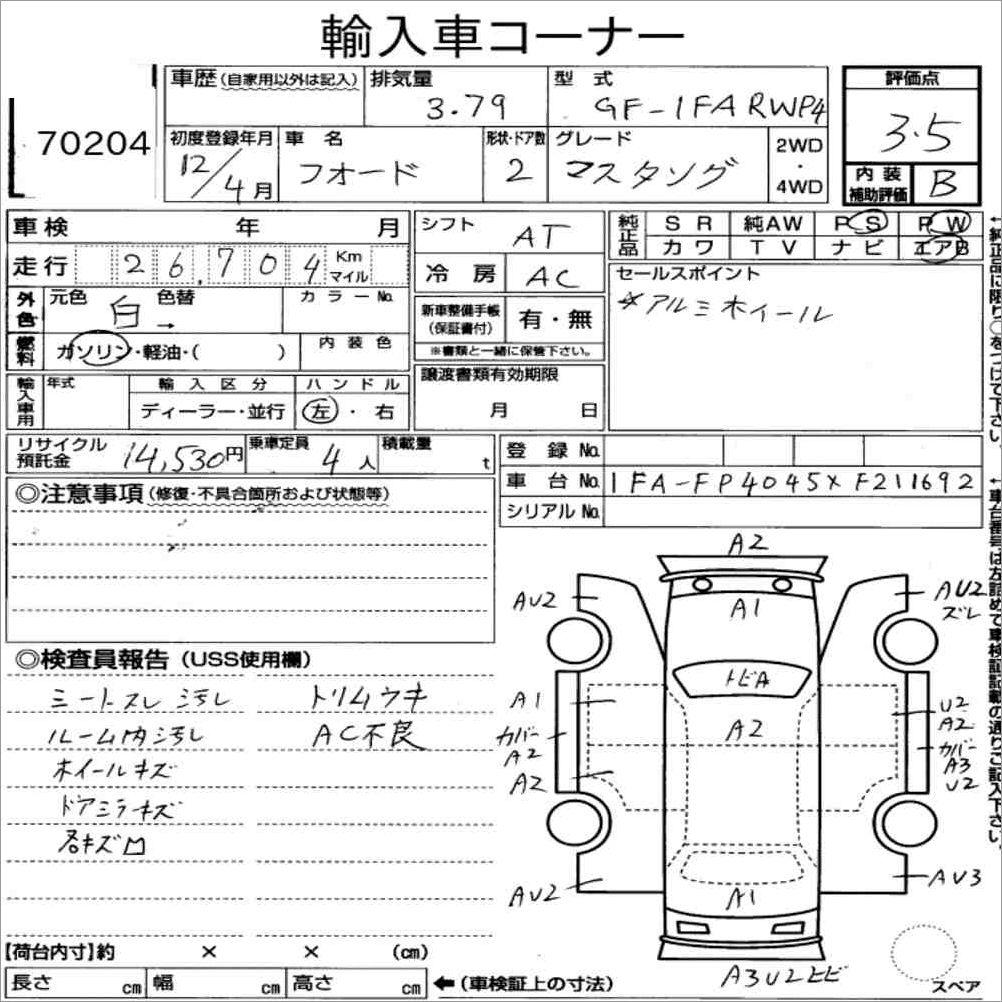 輸入車コーナー
70204
車歴 (自家用以外は記入)
排気量
3.79
型式
GF-1FARWP4
評価点
3.5
初度登録年月
12/4月
車名
フォード
形状・ドア数
2
グレード
マスタング
2WD
・
4WD
内装
補助評価
B
車検 年 月
走行 26,704 Km マイル
シフト
AT
冷房
AC
純正品
SR 純AW PS PW
カワ TV ナビ エアB
セールスポイント
アルミホイール
外色
元色 白
色替 →
カラーNo.
燃料
ガソリン・軽油・( )
内装色
新車整備手帳
(保証書付)
有・無
※書類と一緒に保管下さい。
譲渡書類有効期限
月 日
輸入車用
年式
輸入区分
ディーラー・並行
ハンドル
左・右
リサイクル
預託金
14,530円
乗車定員
4人
積載量
t
登録No.
車台No. 1FA-FP4045XF211692
シリアルNo.
◎注意事項 (修復・不具合箇所および状態等)
◎検査員報告 (USS使用欄)
シートスレ汚レ トリムウキ
ルーム内汚レ AC不良
ホイールキズ
ドアミラーキズ
各キズ凹
A2
AU2
A1
AU2
ズレ
トビA
A1
カバー
A2
A2
A2
U2
A2
カバー
A3
U2
AU2
A1
AU3
A3U2ヒビ
【荷台内寸】約 × × (cm)
長さ cm 幅 cm 高さ cm
←(車検証上の寸法)
スペア
←純正品に限り○をつけて下さい。
←車台番号は左詰めで車検証記載の通りご記入下さい。